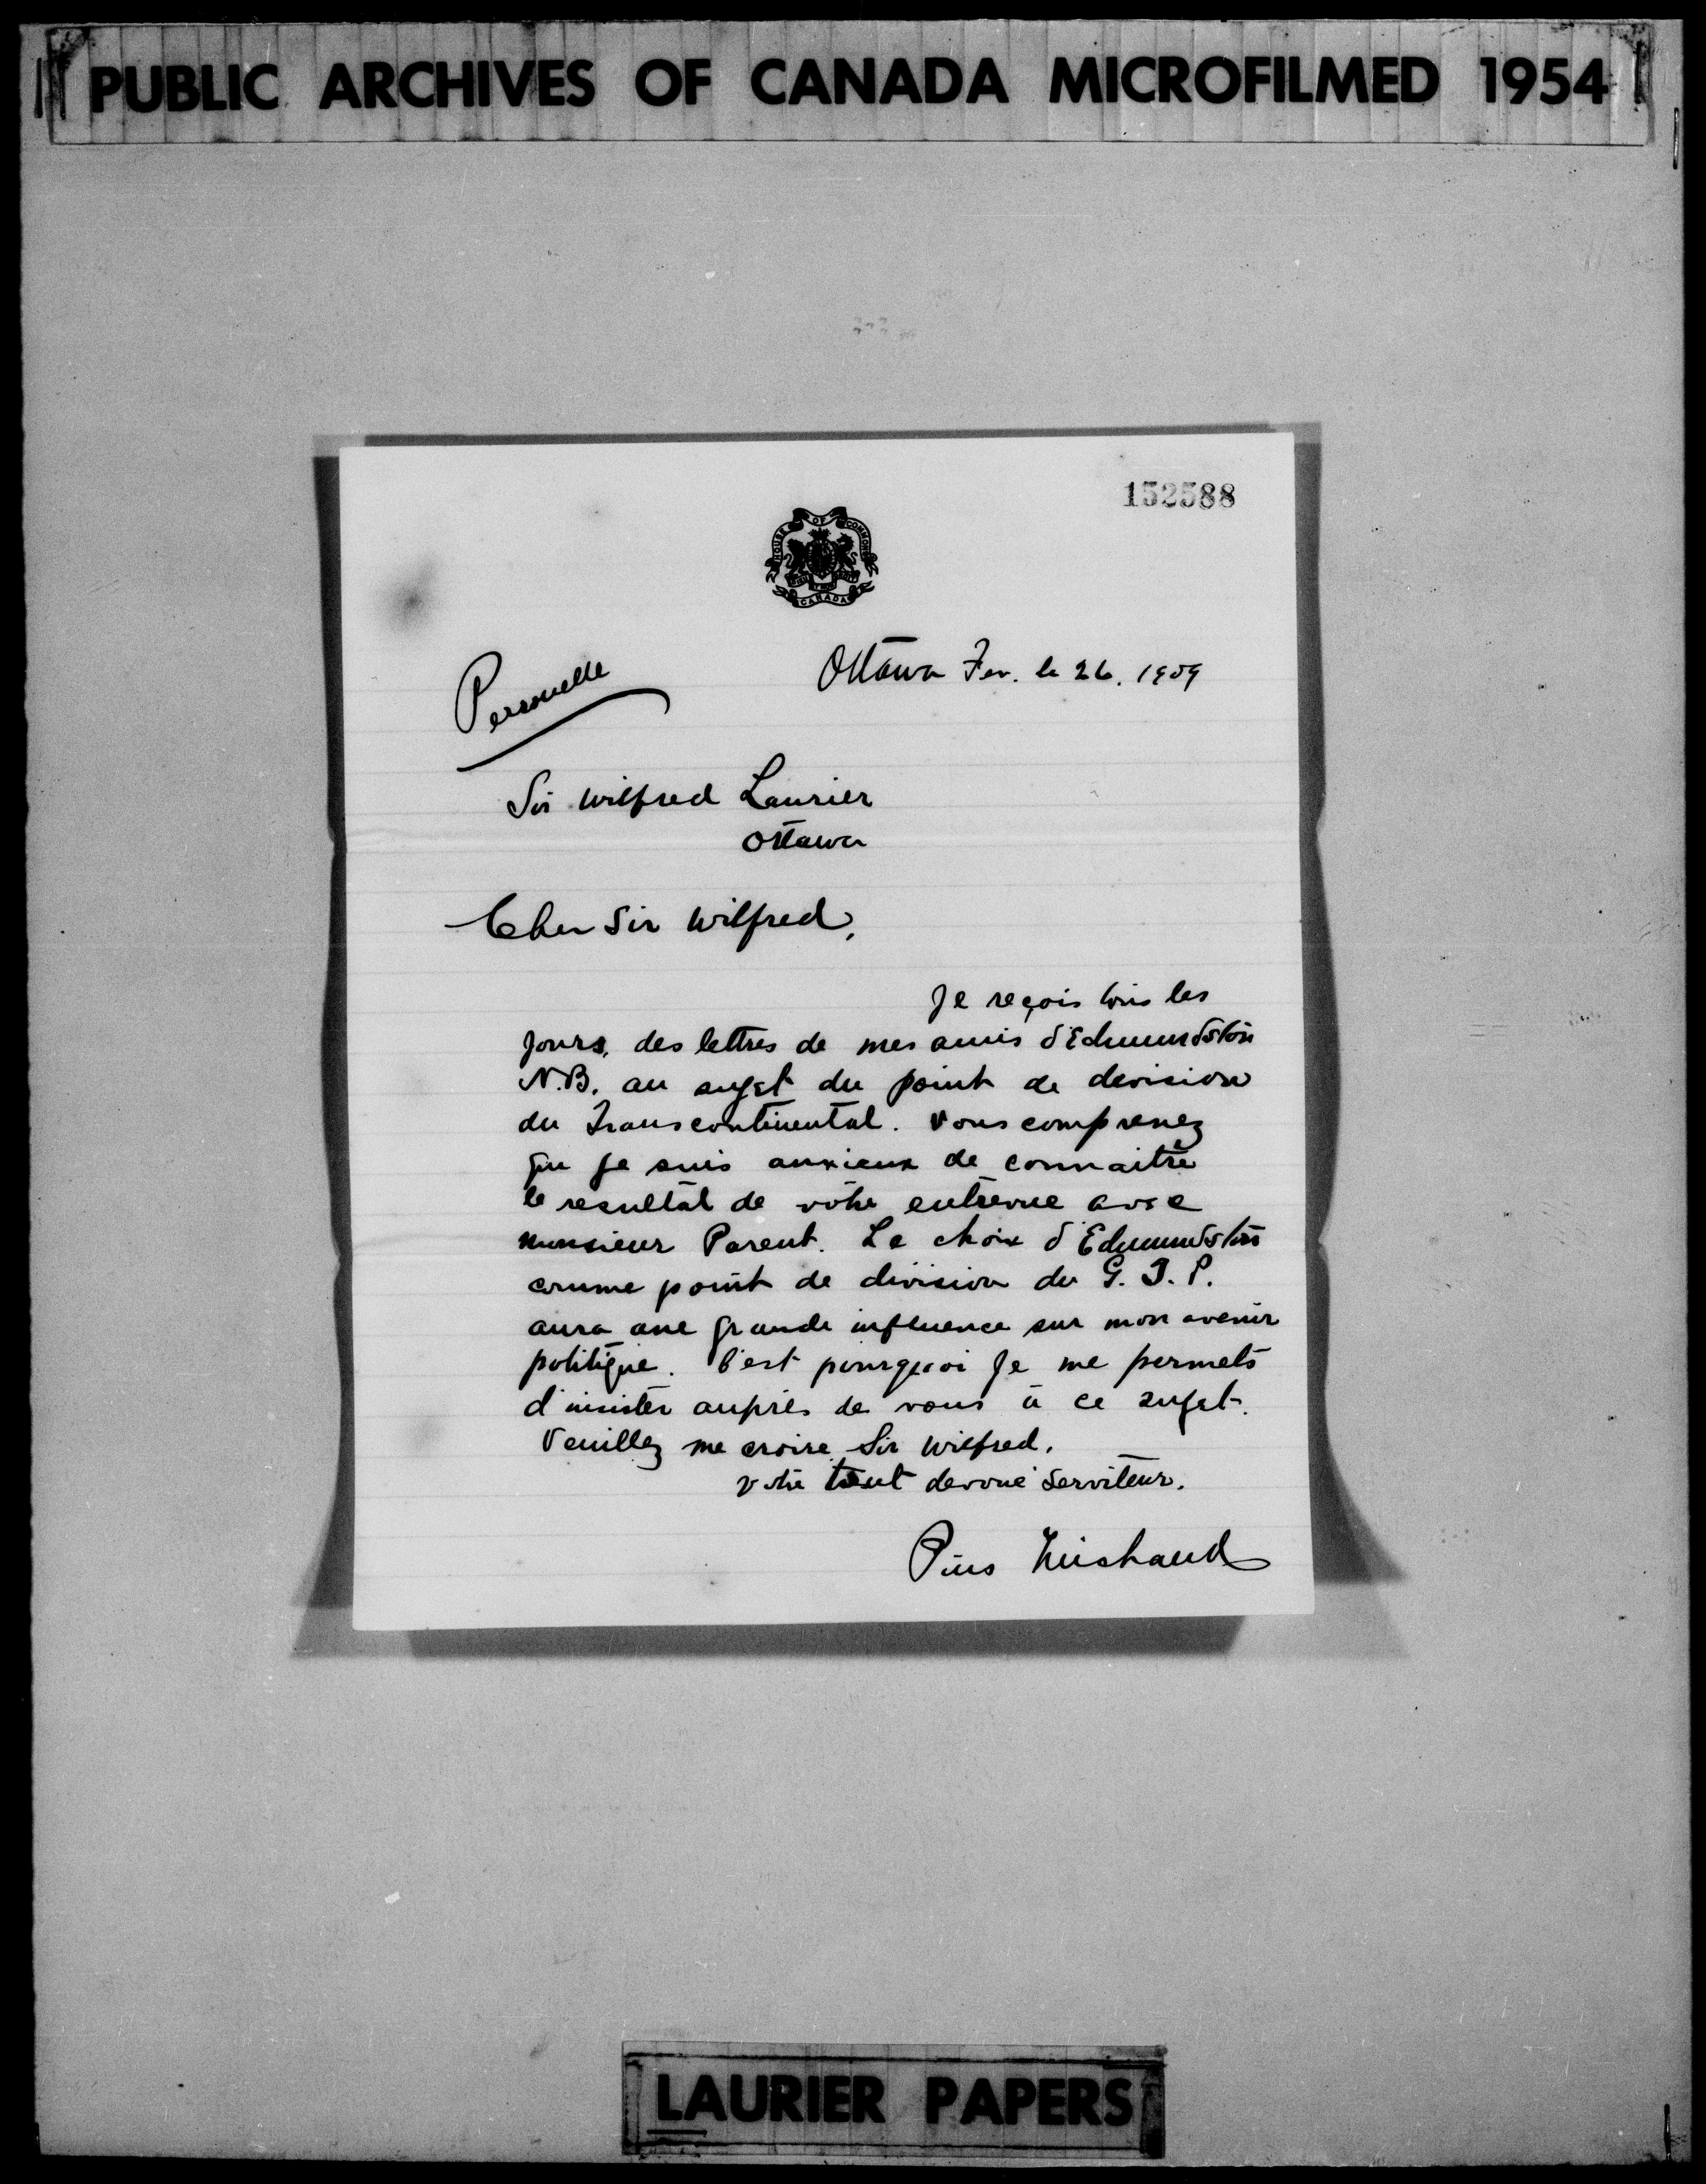 PUBLIC ARCHIVES OF CANADA MICROFILMED 1954
152588
HOUSE OF COMMONS
CANADA
Personelle
Ottawa Fev. le 26. 1909
Sir Wilfred Laurier
Ottawa
Cher Sir Wilfred,
Je reçois tous les
jours, des lettres de mes amis d'Edmundston
N.B. au sujet du point de devision
du Transcontinental. Vous comprenez
que je suis anxieux de connaitre
le resultat de votre entrevue avec
monsieur Parent. Le choix d'Edmundston
comme point de division du G. T. P.
aura une grande influence sur mon avenir
politique. C'est pourquoi je me permets
d'insister auprès de vous à ce sujet.
Veuillez me croire Sir Wilfred.
votre tout devoué serviteur.
Pius Michaud
LAURIER PAPERS